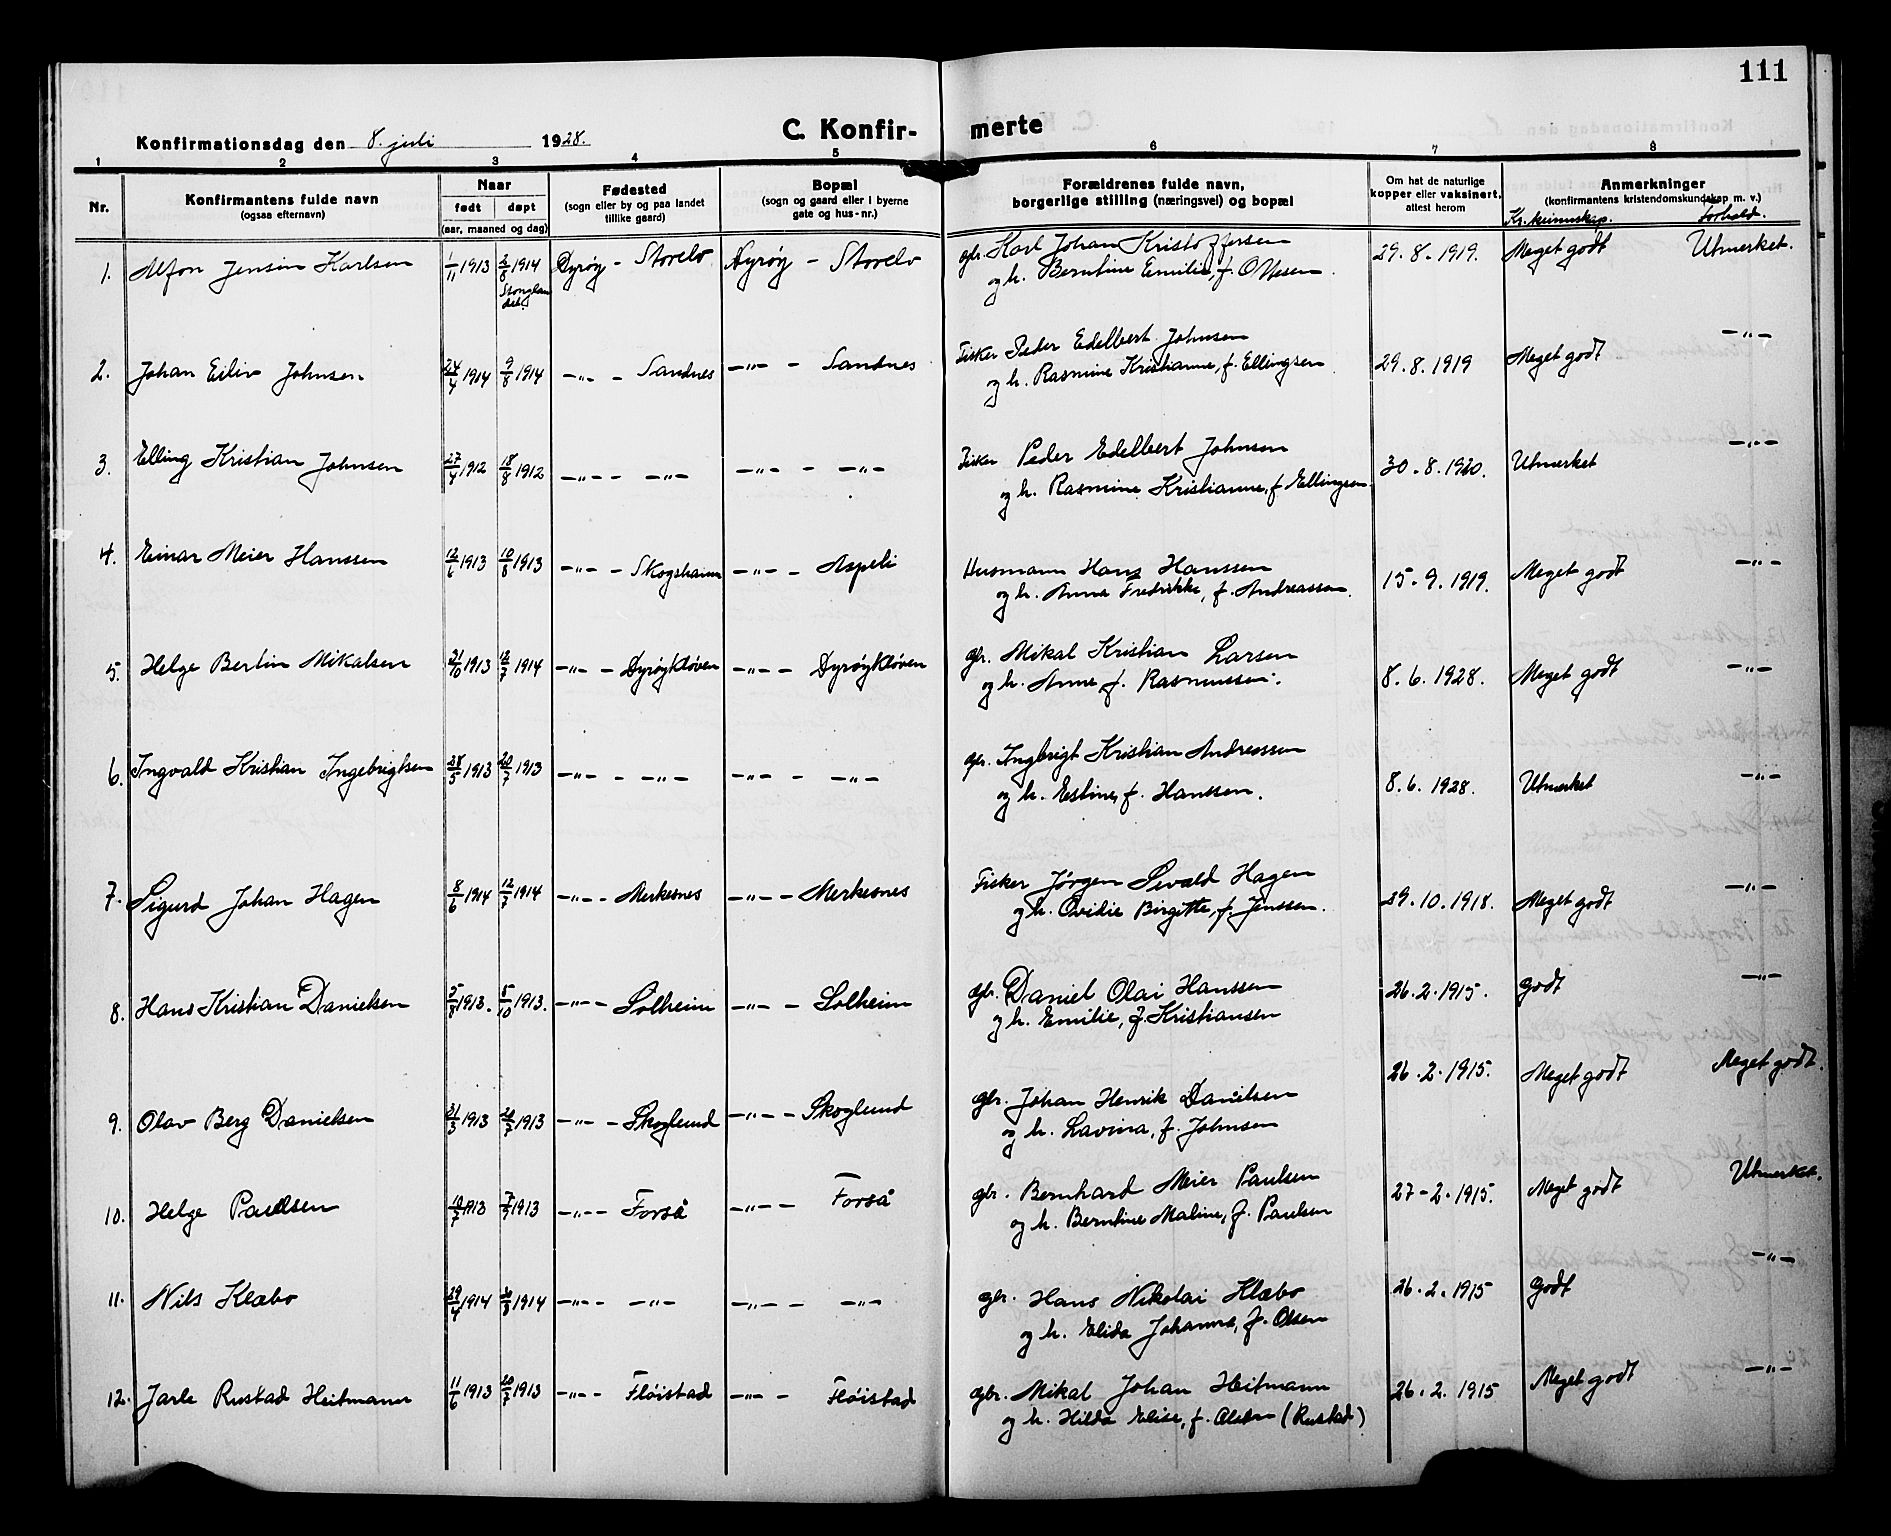 111
Konfirmationsdag den 8. juli 1928.
C. Konfirmerte
1 2 3 4 5 6 7 8
Nr.
Konfirmantens fulde navn
(ogsaa efternavn)
Naar
født døpt
(aar, maaned og dag)
Fødested
(sogn eller by og paa landet
tillike gaard)
Bopæl
(sogn og gaard eller i byerne
gate og hus-nr.)
Forældrenes fulde navn,
borgerlige stilling (næringsvei) og bopæl
Om hat de naturlige
kopper eller vaksinert,
attest herom
Anmerkninger
(konfirmantens kristendomskundskap m. v.)
Kr.kunnskap. forhold.
1. Alfon Jensin Karlsen 1/11 1913 2/8 1914 Dyrøy - Storelv Dyrøy - Storelv gbr. Karl Johan Kristoffersen 29.8.1919. Meget godt Utmerket.
Stonglandet. og h. Berntine Emilie, f. Olesen.
2. Johan Eiliv Johnsen 24/4 1914 9/8 1914 -"- - Sandnes -"- - Sandnes Fisker Peder Edelbert Johnsen 29.8.1919 Meget godt -"-
og h. Rasmine Kristianne, f. Ellingsen
3. Elling Kristian Johnsen 27/4 1912 18/8 1912 -"- - -"- -"- - -"- Fisker Peder Edelbert Johnsen 30.8.1920. Utmerket -"-
og h. Rasmine Kristianne, f. Ellingsen
4. Einar Meier Hanssen 12/6 1913 10/8 1913 -"- - Skogshamn -"- - Aspeli Husmann Hans Hanssen 15.9.1919. Meget godt -"-
og h. Anna Fredrikke, f. Andreassen.
5. Helge Bertin Mikalsen 31/10 1913 12/7 1914 -"- - Dyrøykløven -"- - Dyrøykløven gbr. Mikal Kristian Larsen 8.6.1928. Meget godt -"-
og h. Anne f. Rasmussen.
6. Ingvald Kristian Ingebrigtsen 28/5 1913 20/7 1913 -"- - -"- -"- - -"- gbr. Ingbrigt Kristian Andreassen 8.6.1928. Utmerket -"-
og h. Estine, f. Hanssen.
7. Sigurd Johan Hagen 8/6 1914 12/7 1914 -"- - Merkesnes -"- - Merkesnes Fisker Jørgen Sivald Hagen 29.10.1918. Meget godt -"-
og h. Ovidie Birgitte, f. Jenssen.
8. Hans Kristian Danielsen 5/8 1913. 5/10 1913. -"- - Solheim -"- - Solheim gbr. Daniel Olai Hanssen 26.2.1915. godt -"-
og h. Emilie, f. Kristiansen
9. Olav Berg Danielsen 31/3 1913 20/7 1913 -"- - Skoglund -"- - Skoglund gbr. Johan Henrik Danielsen 26.2.1915. Meget godt Meget godt.
og h. Lavina, f. Johnsen
10. Helge Paulsen 10/7 1913 7/9 1913 -"- - Forså -"- - Forså gbr. Bernhard Meier Paulsen 27-2.1915. Meget godt Utmerket.
og h. Berntine Maline, f. Paulsen
11. Nils Klæbo 29/4 1914 30/8 1914 -"- - -"- -"- - -"- gbr. Hans Nikolai Klæbo 26.2.1915 godt -"-
og h. Elida Johanna, f. Olsen
12. Jarle Rustad Heitmann 11/6 1913 20/7 1913 -"- - Fløistad -"- - Fløistad gbr. Mikal Johan Heitmann 26.2.1915 Meget godt -"-
og h. Hilda Elise, f. Olsen (Rustad)